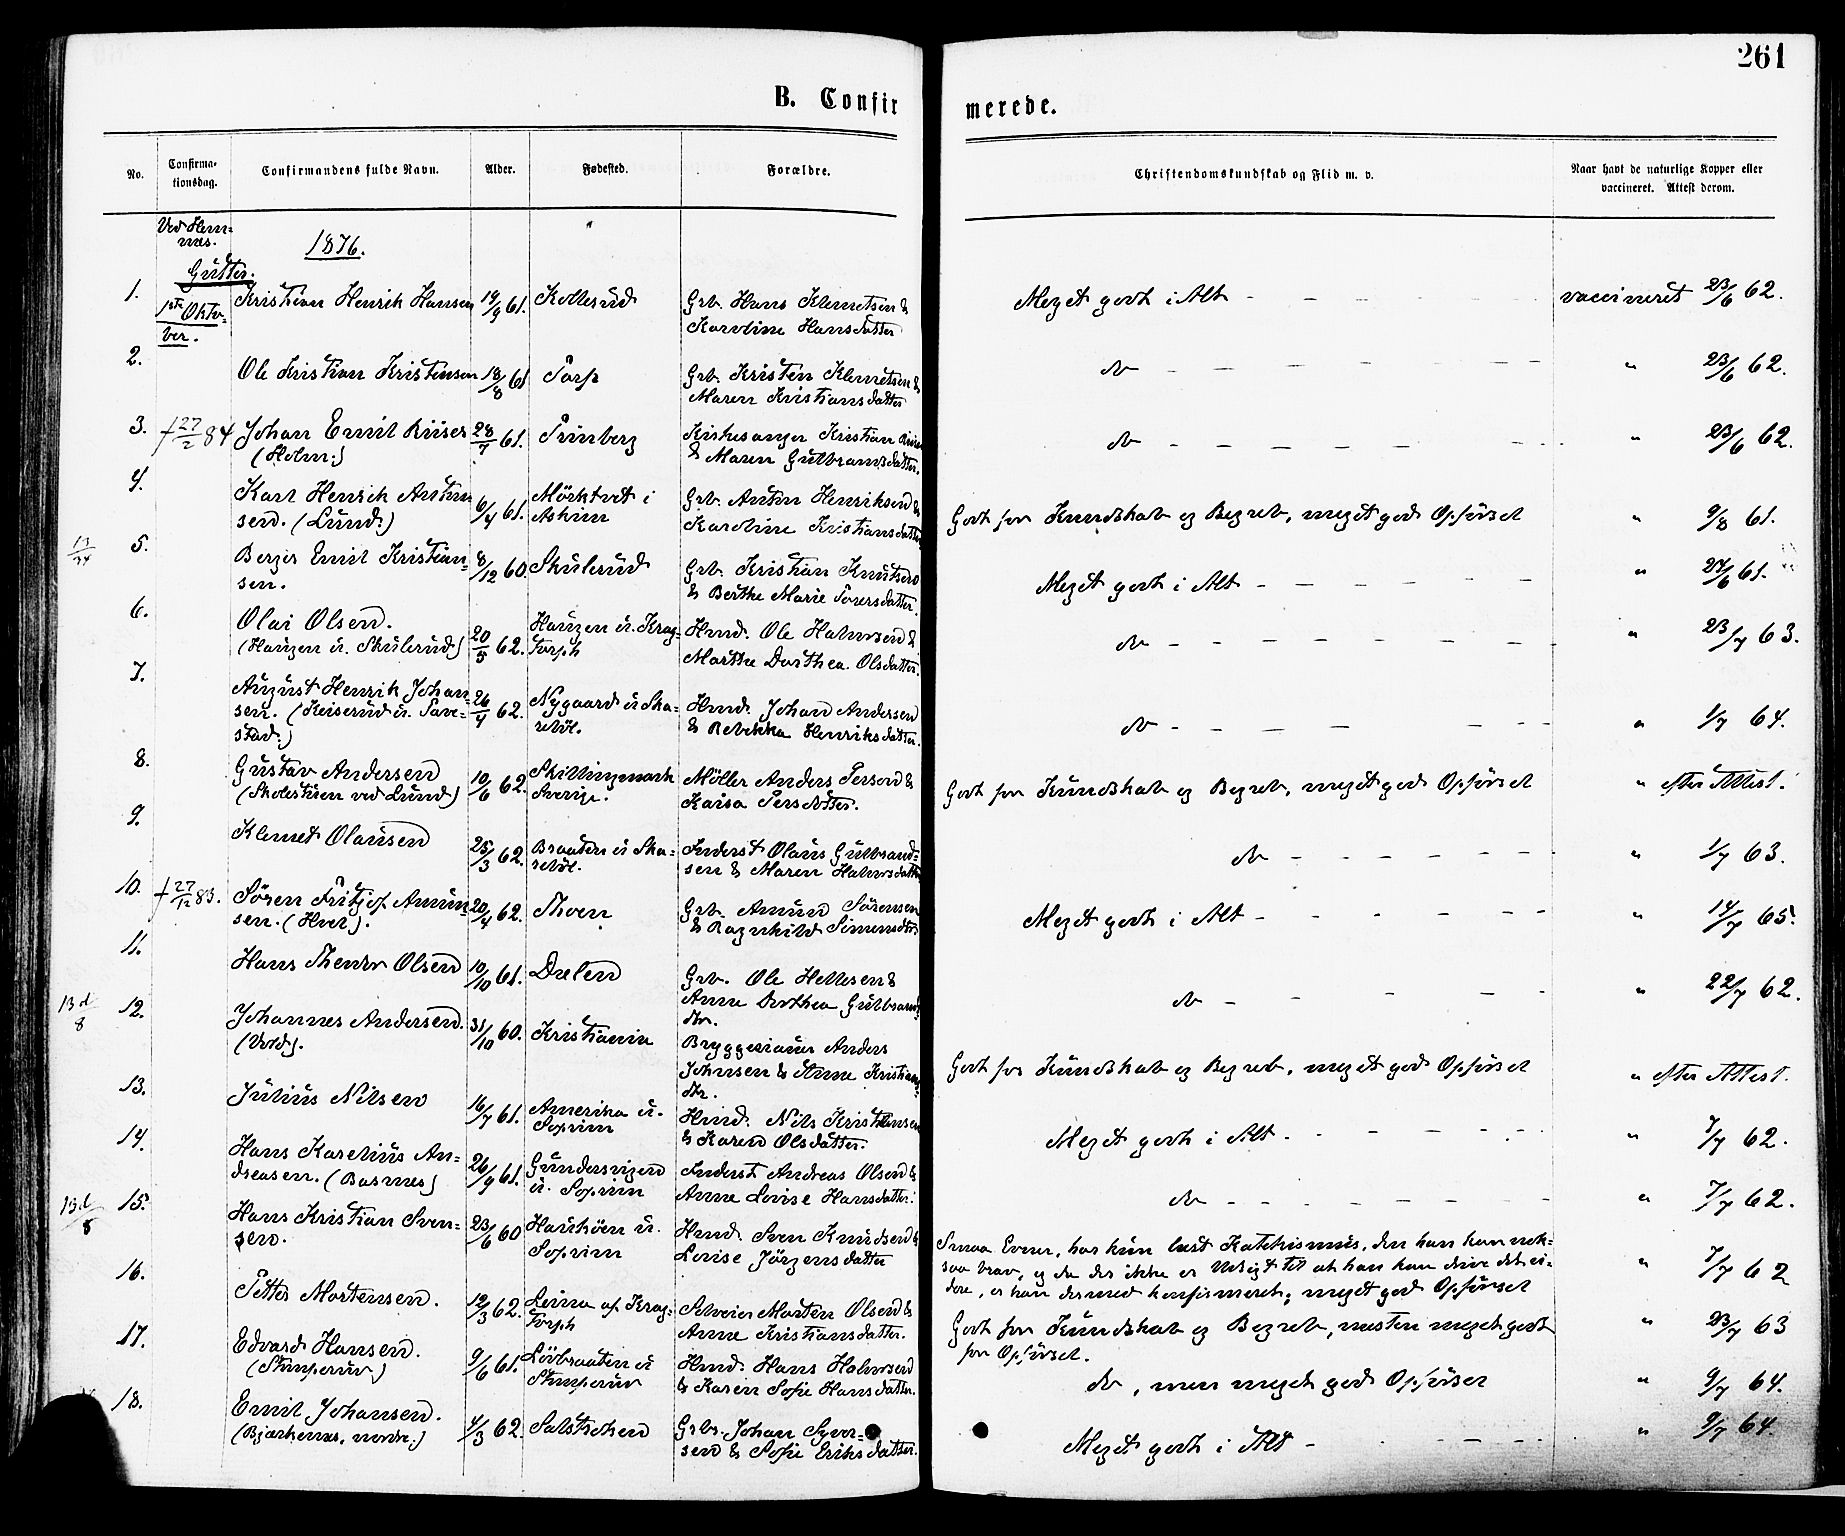 261
B. Confir merede.
No. Confirma-tionsdag. Confirmandens fulde Navn. Alder. Fødested. Forældre. Christendomskundskab og Flid m. v. Naar havt de naturlige Kopper eller vaccineret. Attest derom.
Ved Hem-
nes. 1876.
Gutter.
1. 1ste Okto- Kristian Henrik Hansen 19/9 61. Kollerud Grb. Hans Klemetsen & Meget godt i Alt vaccineret 23/6 62.
ber. Karoline Hansdatter
2. Ole Kristian Kristensen 18/8 61 Torp Grb. Kristen Klemetsen & do " 23/6 62.
Maren Kristiansdatter
3. † 27/2 84 Johan Emil Riiser 28/7 61. Kirkesanger Kristian Riiser do " 23/6 62.
(Holm:) & Maren Gulbransdatter.
4. Karl Henrik Anton 6/4 61. Mörktvet i Grb. Anton Henriksen & Godt for Kundskab og Begreb, meget god Opførsel " 9/8 61.
sen. (Lund:) Askim Karoline Kristiansdatter
5. Berger Emil Kristian- 8/12 60. Skulerud Grb. Kristian Knutsen Meget godt i Alt " 27/6 61.
sen. & Berthe Marie Torersdatter.
6. Olai Olsen. 20/5 62. Haugen u. Krag- Hmd. Ole Halvorsen & do " 23/7 63.
(Haugen u. Skulerud) torph Marthe Dorthea Olsdatter.
7. August Henrik Johan- 26/4 62. Nygaard u Ska- Hmd. Johan Andersen do " 1/7 64.
sen. (Keiserud u. Tave- rebøl. & Rebekka Henriksdatter.
stad:)
8. Gustav Andersen 10/6 62. Skillingmark Möller Anders Person & Godt for Kundskab og Begreb, meget god Opførsel " efter Attest.
(Skolestuen ved Lund) Sverige. Kaisa Persdatter.
9. Klemet Olausen 25/3 62. Braaten u Ska- Inderst Olaus Gulbrand- do " 1/7 63.
rebøl. sen & Maren Halvorsdatter
10. † 27/12 83. Sören Fritjof Amun- 20/4 62. Thoen Grb. Amund Sörensen Meget godt i Alt " 14/7 65.
sen. (Hvel). & Ragnhild Simensdtr
11. Hans Theodor Olsen 10/10 61. Dælen Grb. Ole Hellesen & do " 22/7 62.
Anne Dorthea Gulbrands
dtr.
13 d/8 12. Johannes Andersen. 31/10 60. Kristiania Bryggeriauer Anders Godt for Kundskab og Begreb, meget god Opførsel " efter Attest.
(Vold). Johnsen & Anne Kristians
dtr.
13. Julius Nilsen 16/7 61. Amerika u. Hmd. Nils Kristiansen Meget godt i Alt " 7/7 62.
Soprim & Karen Olsdatter.
14. Hans Karelius An- 26/9 61. Gundersvigen Inderst Andreas Olsen & do " 7/7 62.
dreasen. (Basmes) u. Soprim Anne Lovise Hansdatter.
13 d/8 15. Hans Kristian Sven- 23/6 60 Hauköen u. Hmd. Sven Knudsen & Smaa Evner, har kun læst Katekismus, den han kan nok-
sen. Soprim Lovise Jörgensdatter saa brav, og da der ikke er Udsigt til at han kan drive det vi- " 7/7 62
dere, er han dermed konfirmeret; meget god Opførsel
16. Petter Mortensen. 12/3 62. Leira af Krag- Morten Olsen & Godt for Kundskab og Begreb, næsten meget godt " 23/7 63
torph Anne Kristiansdatter. for Opførsel.
17. Edvard Hansen. 9/6 61. Lövbraaten u Hmd. Hans Halvorsen do, men meget god Opførsel " 9/7 64.
(Stumperud) Stumperud & Karen Sofie Hansdatter.
18. Emil Johansen. 4/3 62. Grbr. Johan Syver- Meget godt i Alt " 9/7 64.
(Bjærkenæs, nordre.) sen & Sofie Eriksdatter.